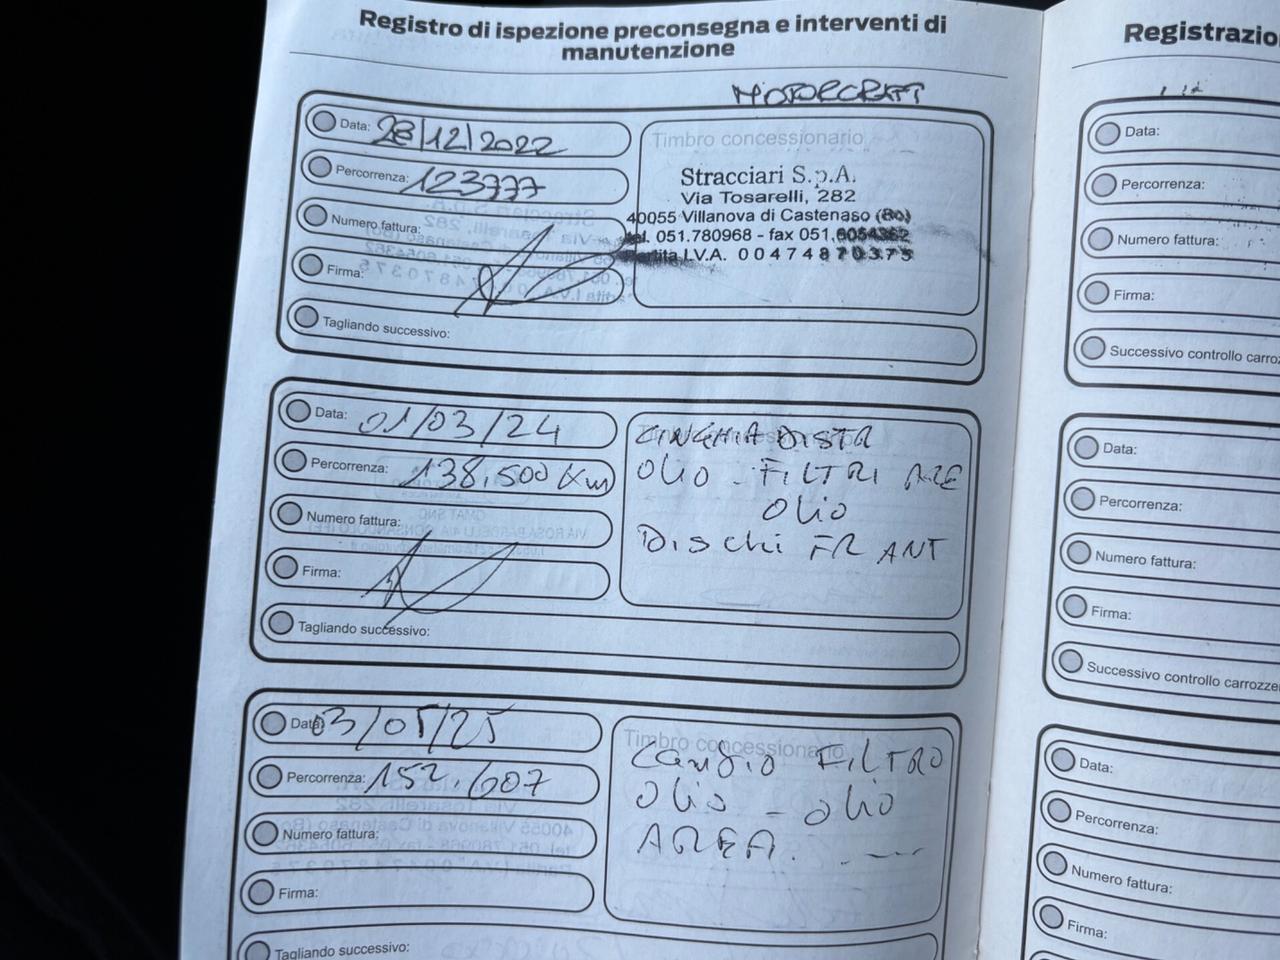 Registro di ispezione preconsegna e interventi di
manutenzione
MOTORCRAFT
Data: 28/12/2022
Percorrenza: 123777
Numero fattura:
Firma:
Tagliando successivo:
Timbro concessionario
Stracciari S.p.A.
Via Tosarelli, 282
40055 Villanova di Castenaso (Bo)
tel. 051.780968 - fax 051.6054362
Partita I.V.A. 00474870375
Data: 01/03/24
Percorrenza: 138,500 Km
Numero fattura:
Firma:
Tagliando successivo:
Timbro concessionario
CINGHIA DISTR
OLIO - FILTRI ARE
OLIO
Dischi FR ANT
Data: 03/05/25
Percorrenza: 152.607
Numero fattura:
Firma:
Tagliando successivo:
Timbro concessionario
Cambio FILTRO
OLIO - OLIO
AREA.
Registrazio
Data:
Percorrenza:
Numero fattura:
Firma:
Successivo controllo carroz
Data:
Percorrenza:
Numero fattura:
Firma:
Successivo controllo carrozze
Data:
Percorrenza:
Numero fattura:
Firma: